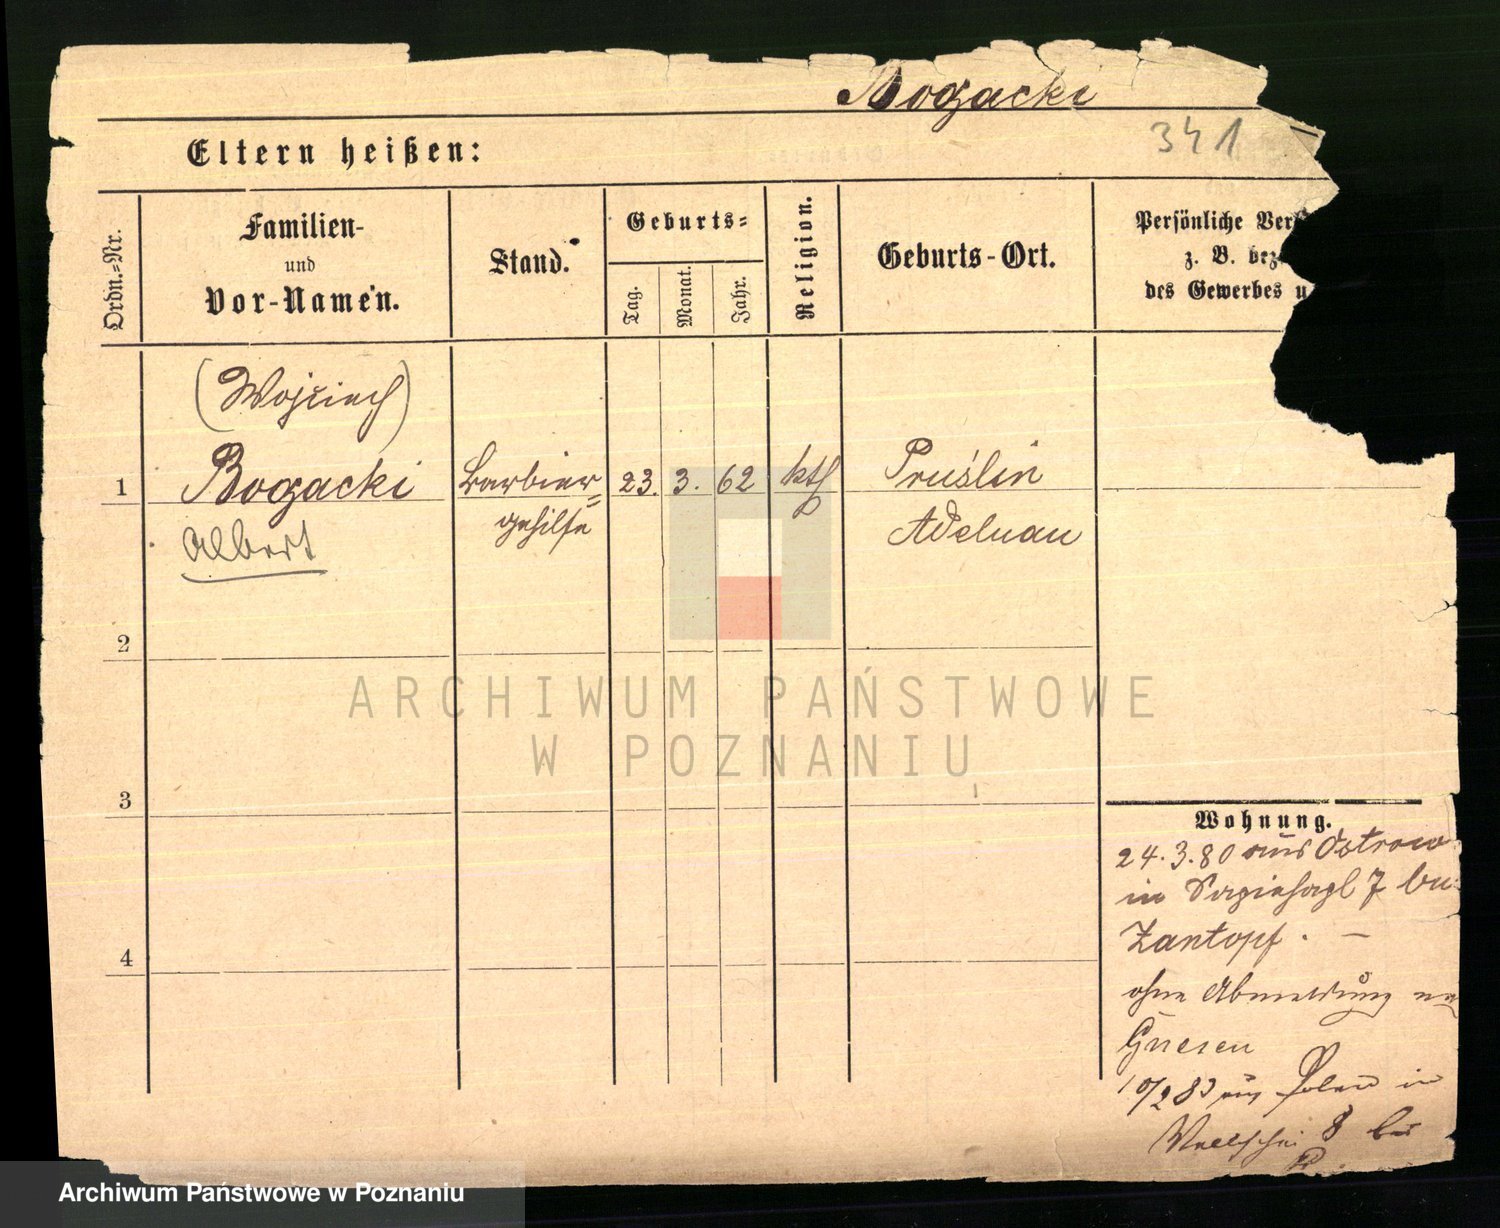 Bogacki
341
Eltern heißen:
Ordn.=Nr.
Familien-
und
Vor-Namen.
Stand.
Geburts=
Tag.
Monat.
Jahr.
Religion.
Geburts-Ort.
Persönliche Ver
z. B. bez
des Gewerbes u
(Wojciech)
1
Bogacki
Barbier=
gehilfe
23. 3. 62
kth
Pruślin
Adelnau
Albert
2
3
4
ARCHIWUM PAŃSTWOWE
W POZNANIU
Wohnung.
24.3.80 aus Ostrowo
in Sapiehapl 7 bei
Zantopf. —
ohne Abmeldung
Gnesen
10/2 83 aus Polen in
8 bei
Archiwum Państwowe w Poznaniu